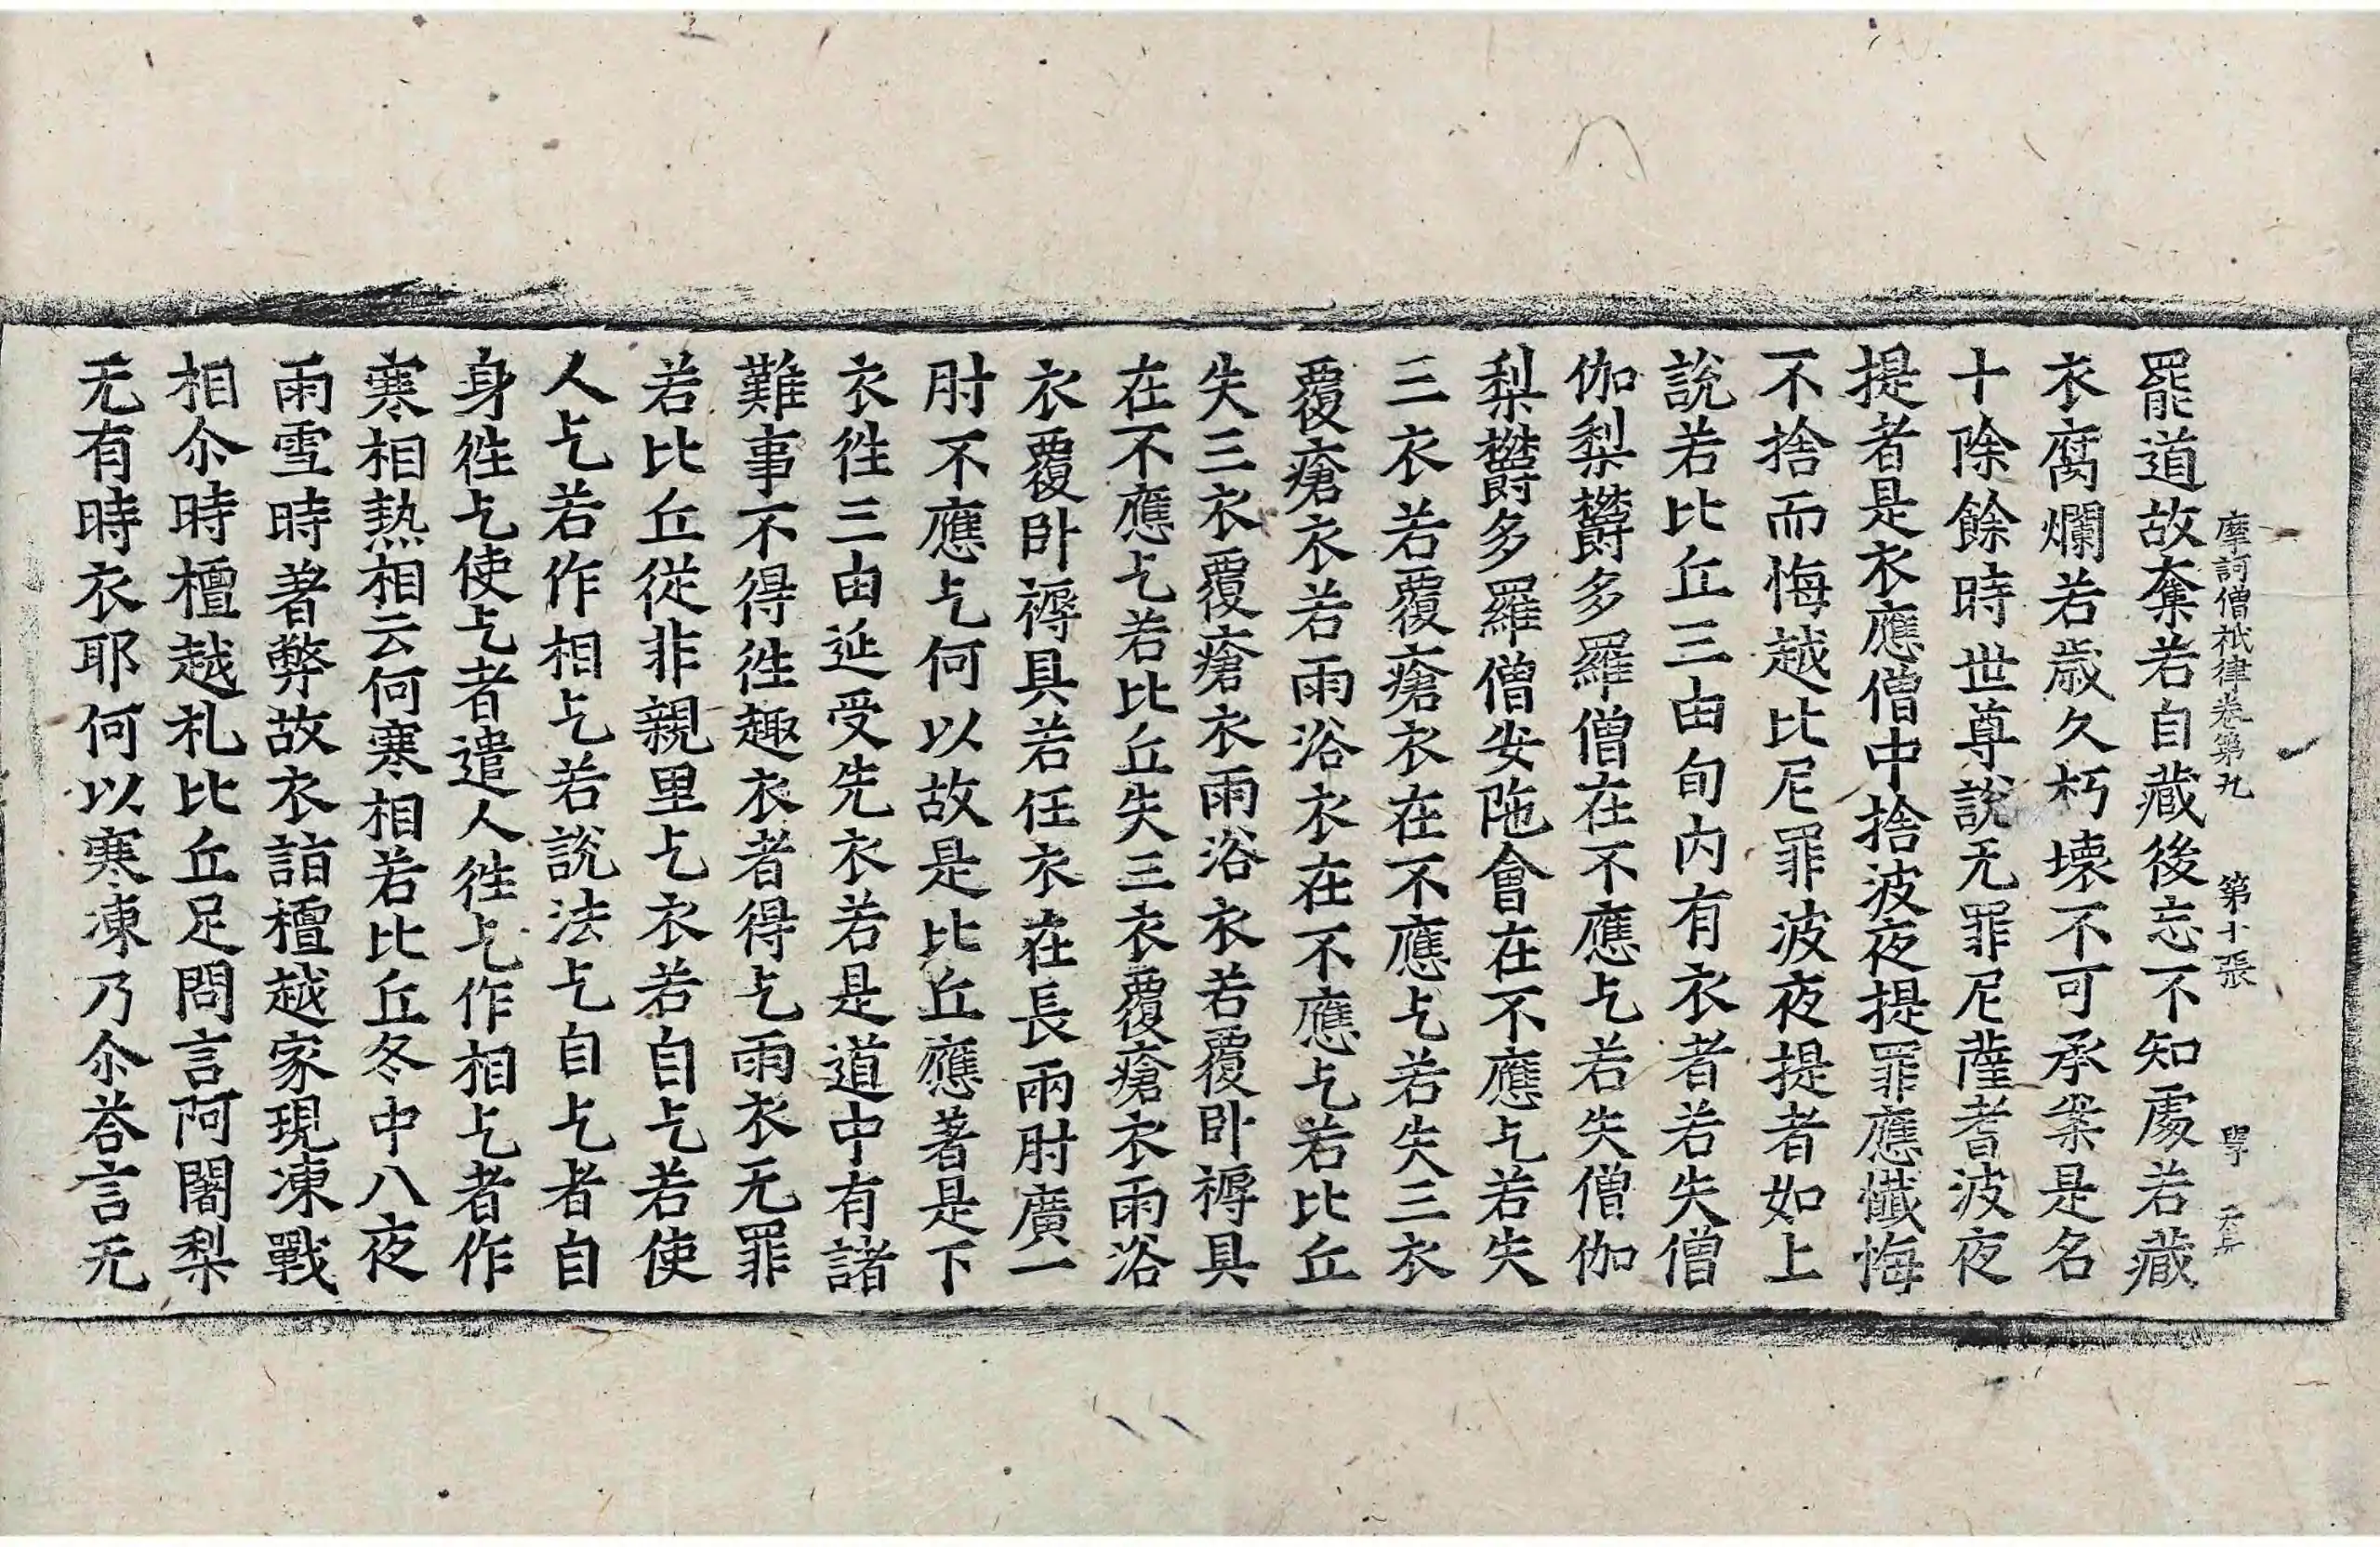 摩訶僧祇律卷第九　第十張　學
罷道故奪若自藏後忘不知處若藏
衣腐爛若歲久朽壞不可承案是名
十除餘時世尊說无罪尼薩耆波夜
提者是衣應僧中捨波夜提罪應懺悔
不捨而悔越比尼罪波夜提者如上
說若比丘三由旬內有衣者若失僧
伽梨欝多羅僧在不應乞若失僧伽
梨欝多羅僧安陁會在不應乞若失
三衣若覆瘡衣在不應乞若失三衣
覆瘡衣若雨浴衣在不應乞若比丘
失三衣覆瘡衣雨浴衣若覆卧褥具
在不應乞若比丘失三衣覆瘡衣雨浴
衣覆卧褥具若任衣在長兩肘廣一
肘不應乞何以故是比丘應著是下
衣徃三由延受先衣若是道中有諸
難事不得徃趣衣者得乞雨衣无罪
若比丘從非親里乞衣若自乞若使
人乞若作相乞若說法乞自乞者自
身徃乞使乞者遣人徃乞作相乞者作
寒相熱相云何寒相若比丘冬中八夜
雨雪時著弊故衣詣檀越家現凍戰
相尒時檀越礼比丘足問言阿闍梨
无有時衣耶何以寒凍乃尒荅言无